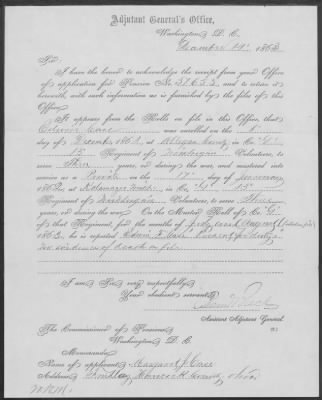 Adjutant General's Office,
Washington, D. C.
December 19th, 1863
Sir:
I have the honor to acknowledge the receipt from your Office
of application for Pension No. 37633, and to return it
herewith, with such information as is furnished by the files of this
Office.
It appears from the Rolls on file in this Office, that
was enrolled on the
day of 186 , at Allegan County, in Co. "G"
Regiment of Michigan Volunteers, to serve
years, or during the war, and mustered into
service as a Private on the 17" day of January
1862, at Kalamazoo Mich., in Co. "G" 13"
Regiment of Michigan Volunteers, to serve Three
years, or during the war. On the Muster Roll of Co. "G"
of that Regiment, for the months of July and August
1863, he is reported
No evidence of death on file
I am, Sir, very respectfully,
Your obedient servant,
Assistant Adjutant General
The Commissioner of Pensions,
Washington, D. C.
Memoranda:
Name of applicant, Margaret J. Case
Address, Findlay Hancock County, Ohio